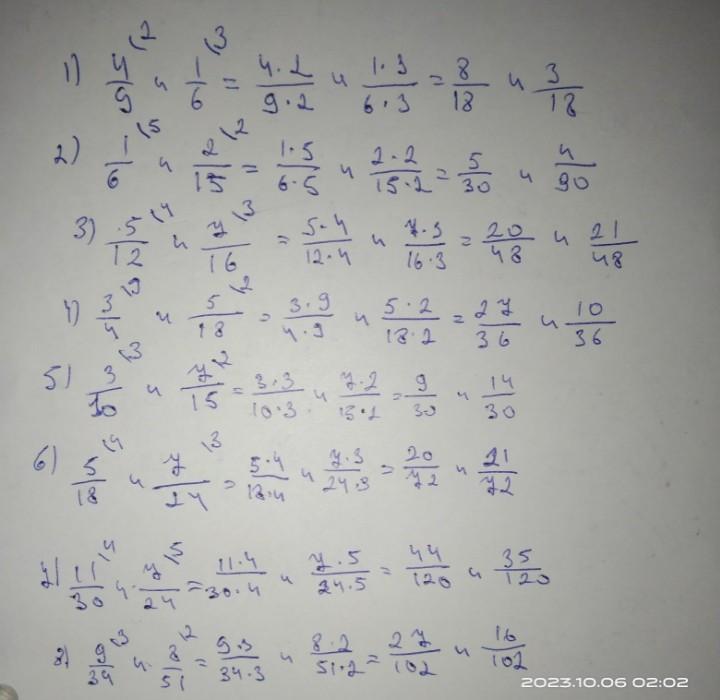 1) 4/9 \2 и 1/6 \3 = 4·2/9·2 и 1·3/6·3 = 8/18 и 3/18
2) 1/6 \5 и 2/15 \2 = 1·5/6·5 и 2·2/15·2 = 5/30 и 4/90
3) 5/12 \4 и 7/16 \3 = 5·4/12·4 и 7·3/16·3 = 20/48 и 21/48
4) 3/4 \9 и 5/18 \2 = 3·9/4·9 и 5·2/18·2 = 27/36 и 10/36
5) 3/10 \3 и 7/15 \2 = 3·3/10·3 и 7·2/15·2 = 9/30 и 14/30
6) 5/18 \4 и 7/24 \3 = 5·4/18·4 и 7·3/24·3 = 20/72 и 21/72
7) 11/30 \4 и 7/24 \5 = 11·4/30·4 и 7·5/24·5 = 44/120 и 35/120
8) 9/34 \3 и 8/51 \2 = 9·3/34·3 и 8·2/51·2 = 27/102 и 16/102
2023.10.06 02:02